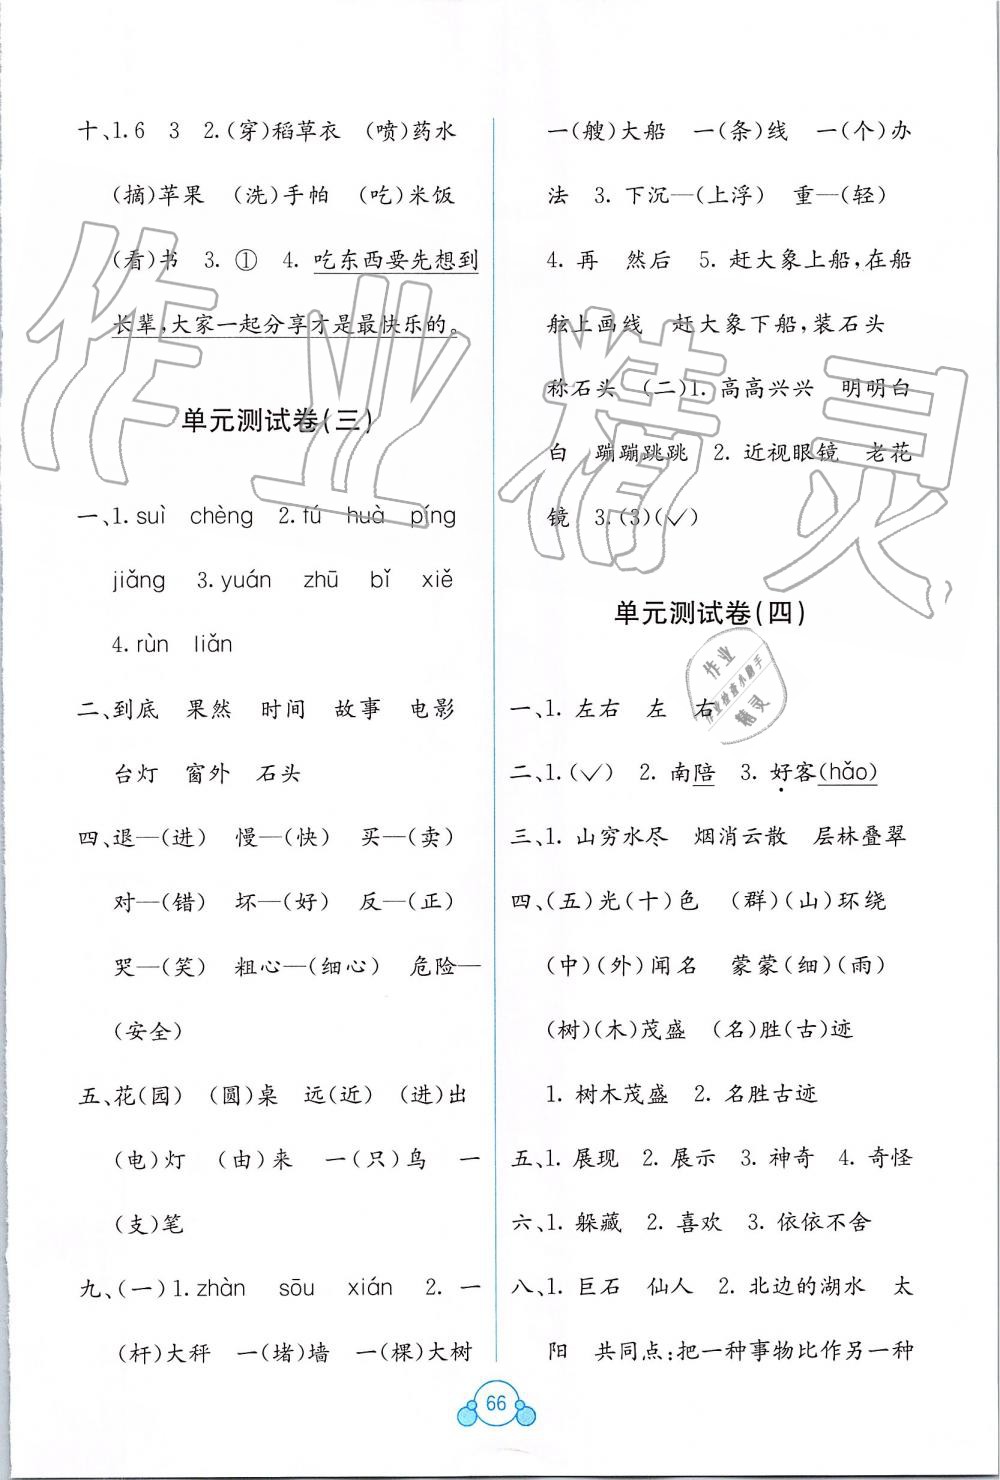 十、1.6 3 2.(穿)稻草衣 (喷)药水
(摘)苹果 (洗)手帕 (吃)米饭
(看)书 3. ① 4. 吃东西要先想到
长辈,大家一起分享才是最快乐的。
单元测试卷(三)
一、1. suì chèng 2. tú huà píng
jiǎng 3. yuán zhū bǐ xiě
4. rùn liǎn
二、到底 果然 时间 故事 电影
台灯 窗外 石头
四、退—(进) 慢—(快) 买—(卖)
对—(错) 坏—(好) 反—(正)
哭—(笑) 粗心—(细心) 危险—
(安全)
五、花(园) (圆)桌 远(近) (进)出
(电)灯 (由)来 一(只)鸟 一
(支)笔
九、(一)1. zhàn sōu xián 2. 一
(杆)大秤 一(堵)墙 一(棵)大树
一(艘)大船 一(条)线 一(个)办
法 3. 下沉—(上浮) 重—(轻)
4. 再 然后 5. 赶大象上船,在船
舷上画线 赶大象下船,装石头
称石头 (二)1. 高高兴兴 明明白
白 蹦蹦跳跳 2. 近视眼镜 老花
镜 3.(3)(✓)
单元测试卷(四)
一、1. 左右 左 右
二、1.(✓) 2. 南陪 3. 好客(hǎo)
三、1. 山穷水尽 烟消云散 层林叠翠
四、(五)光(十)色 (群)(山)环绕
(中)(外)闻名 蒙蒙(细)(雨)
(树)(木)茂盛 (名)胜(古)迹
1. 树木茂盛 2. 名胜古迹
五、1. 展现 2. 展示 3. 神奇 4. 奇怪
六、1. 躲藏 2. 喜欢 3. 依依不舍
八、1. 巨石 仙人 2. 北边的湖水 太
阳 共同点:把一种事物比作另一种
66
作业精灵
作业
作业检查小助手
精灵